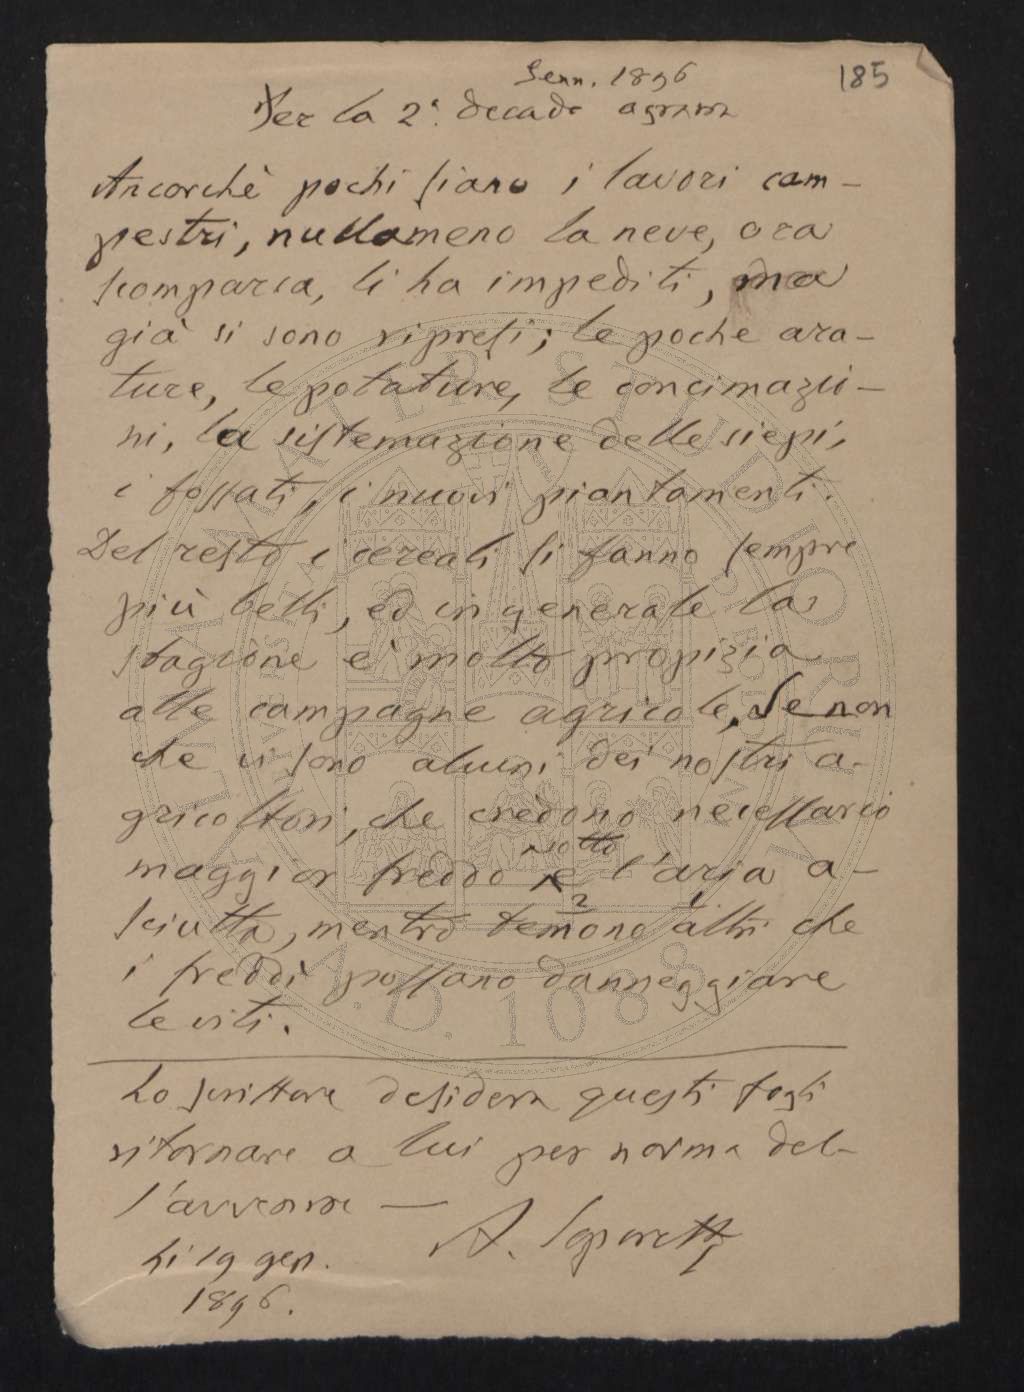 185
Genn. 1896
Per la 2ª. decade agraria
Ancorchè pochi siano i lavori cam-
pestri, nullameno la neve, ora
scomparsa, li ha impediti, ma
già si sono ripresi; le poche ara-
ture, le potature, le concimazio-
ni, la sistemazione delle siepi,
i fossati, i nuovi piantamenti.
Del resto i cereali si fanno sempre
più belli, ed in generale la
stagione è molto propizia
alle campagne agricole, Se non
che vi sono alcuni dei nostri a-
gricoltori, che credono necessario
maggior freddo e l'aria a-
sciutta, mentre temono altri che
i freddi possano danneggiare
le viti.
Lo scrittore desidera questi fogli
ritornare a lui per norma del-
l'avvenire —
A.
li 19 gen.
1896.
ALMA MATER STUDIORUM
A.D. 1088